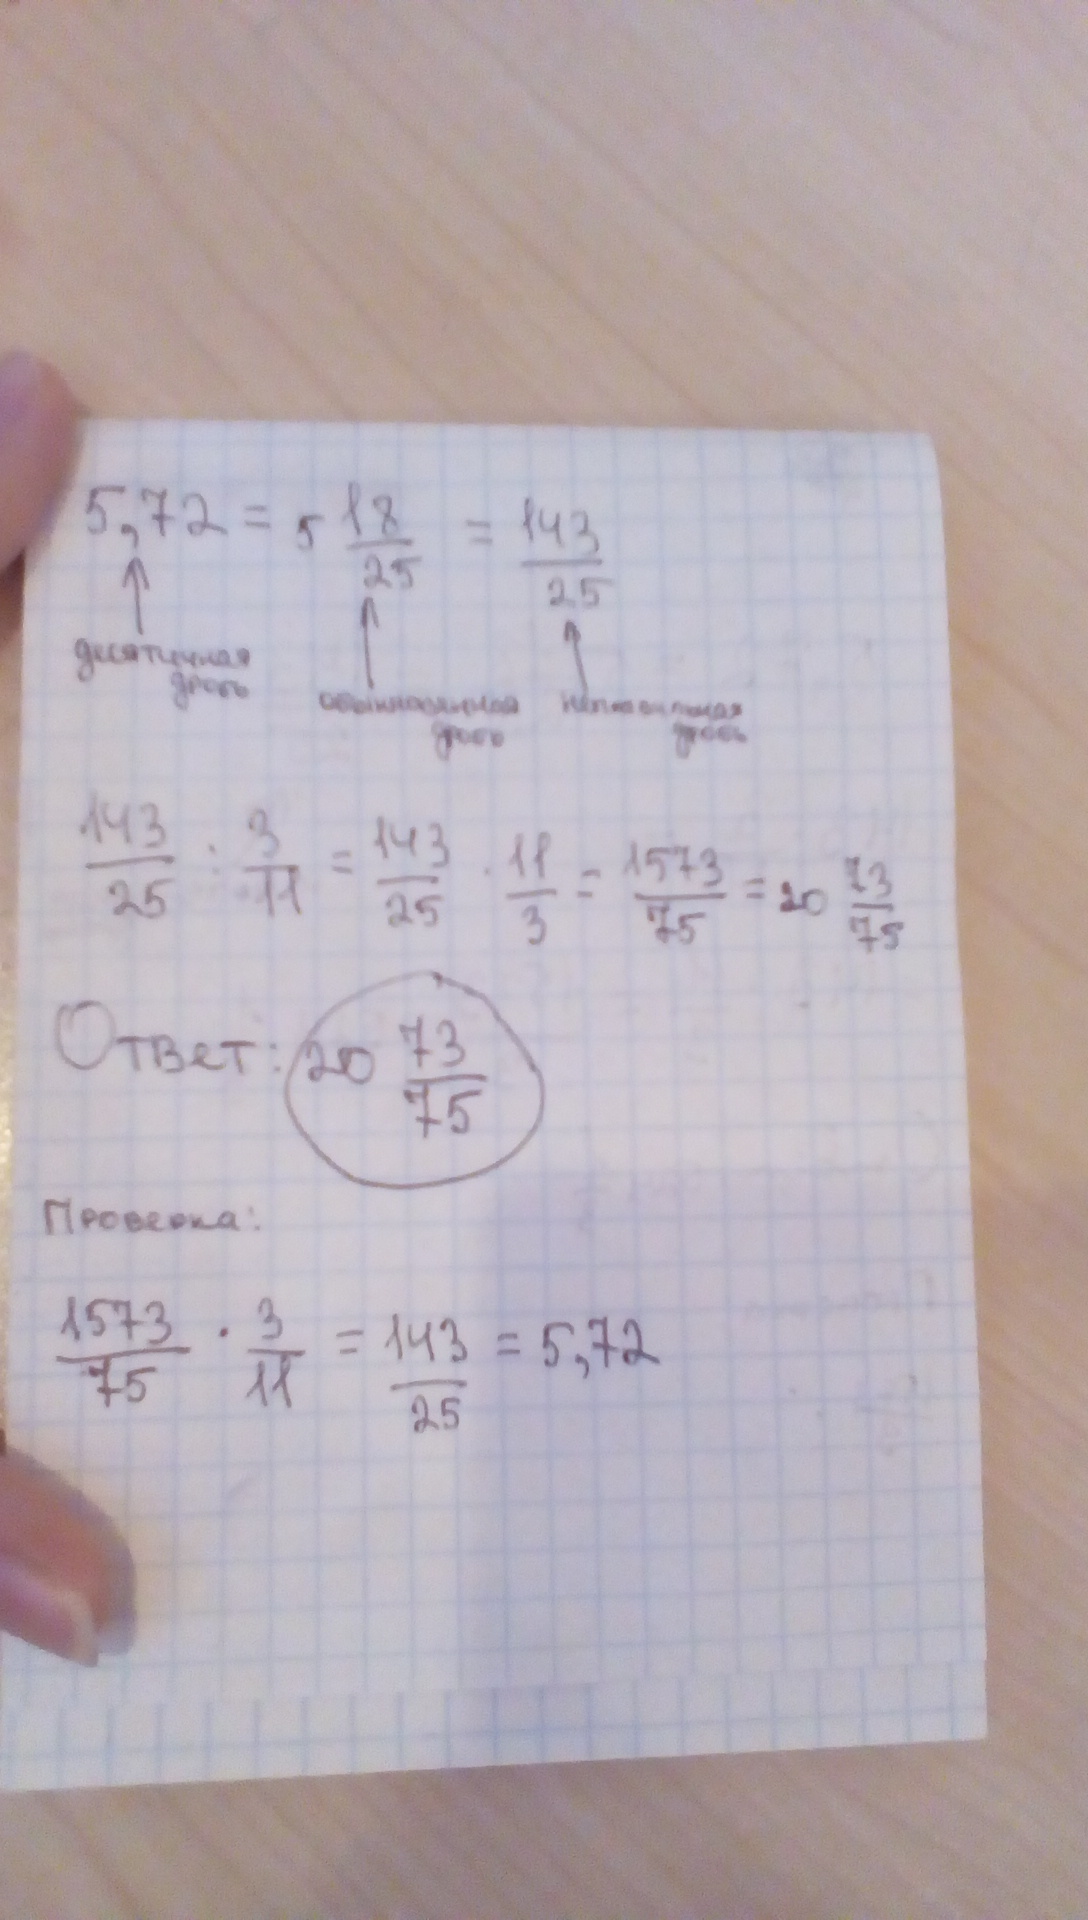 5,72 = 5 18/25 = 143/25
десятичная дробь
обыкновенная дробь
неправильная дробь
143/25 : 3/11 = 143/25 · 11/3 = 1573/75 = 20 73/75
Ответ: 20 73/75
Проверка:
1573/75 · 3/11 = 143/25 = 5,72